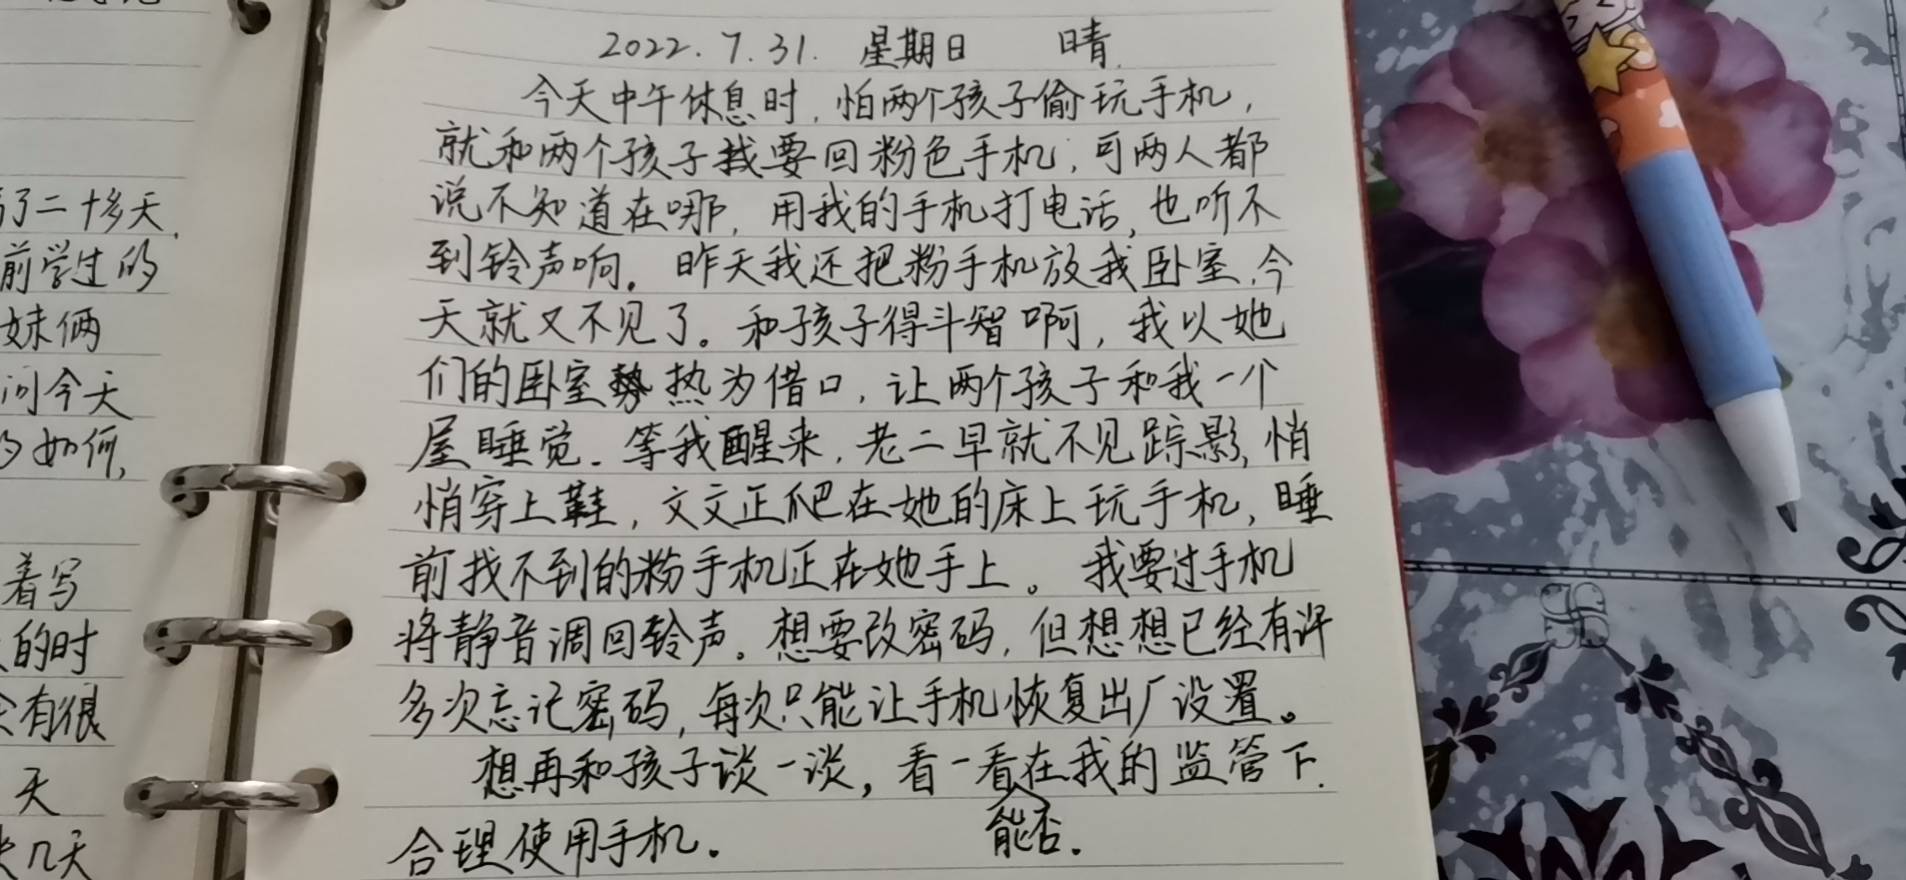 了二十多天.
前学过的
妹俩
问今天
如何,
着写
的时
有很
天
几天
2022.7.31. 星期日 晴.
今天中午休息时,怕两个孩子偷玩手机,
就和两个孩子我要回粉色手机,可两人都
说不知道在哪,用我的手机打电话,也听不
到铃声响。昨天我还把粉手机放我卧室,今
天就又不见了。和孩子得斗智啊,我以她
们的卧室热为借口,让两个孩子和我一个
屋睡觉.等我醒来,老二早就不见踪影,悄
悄穿上鞋,文文正爬在她的床上玩手机,睡
前找不到的粉手机正在她手上。我要过手机
将静音调回铃声。想要改密码,但想想已经有许
多次忘记密码,每次只能让手机恢复出厂设置。
想再和孩子谈一谈,看一看在我的监管下.
能否.
合理使用手机.